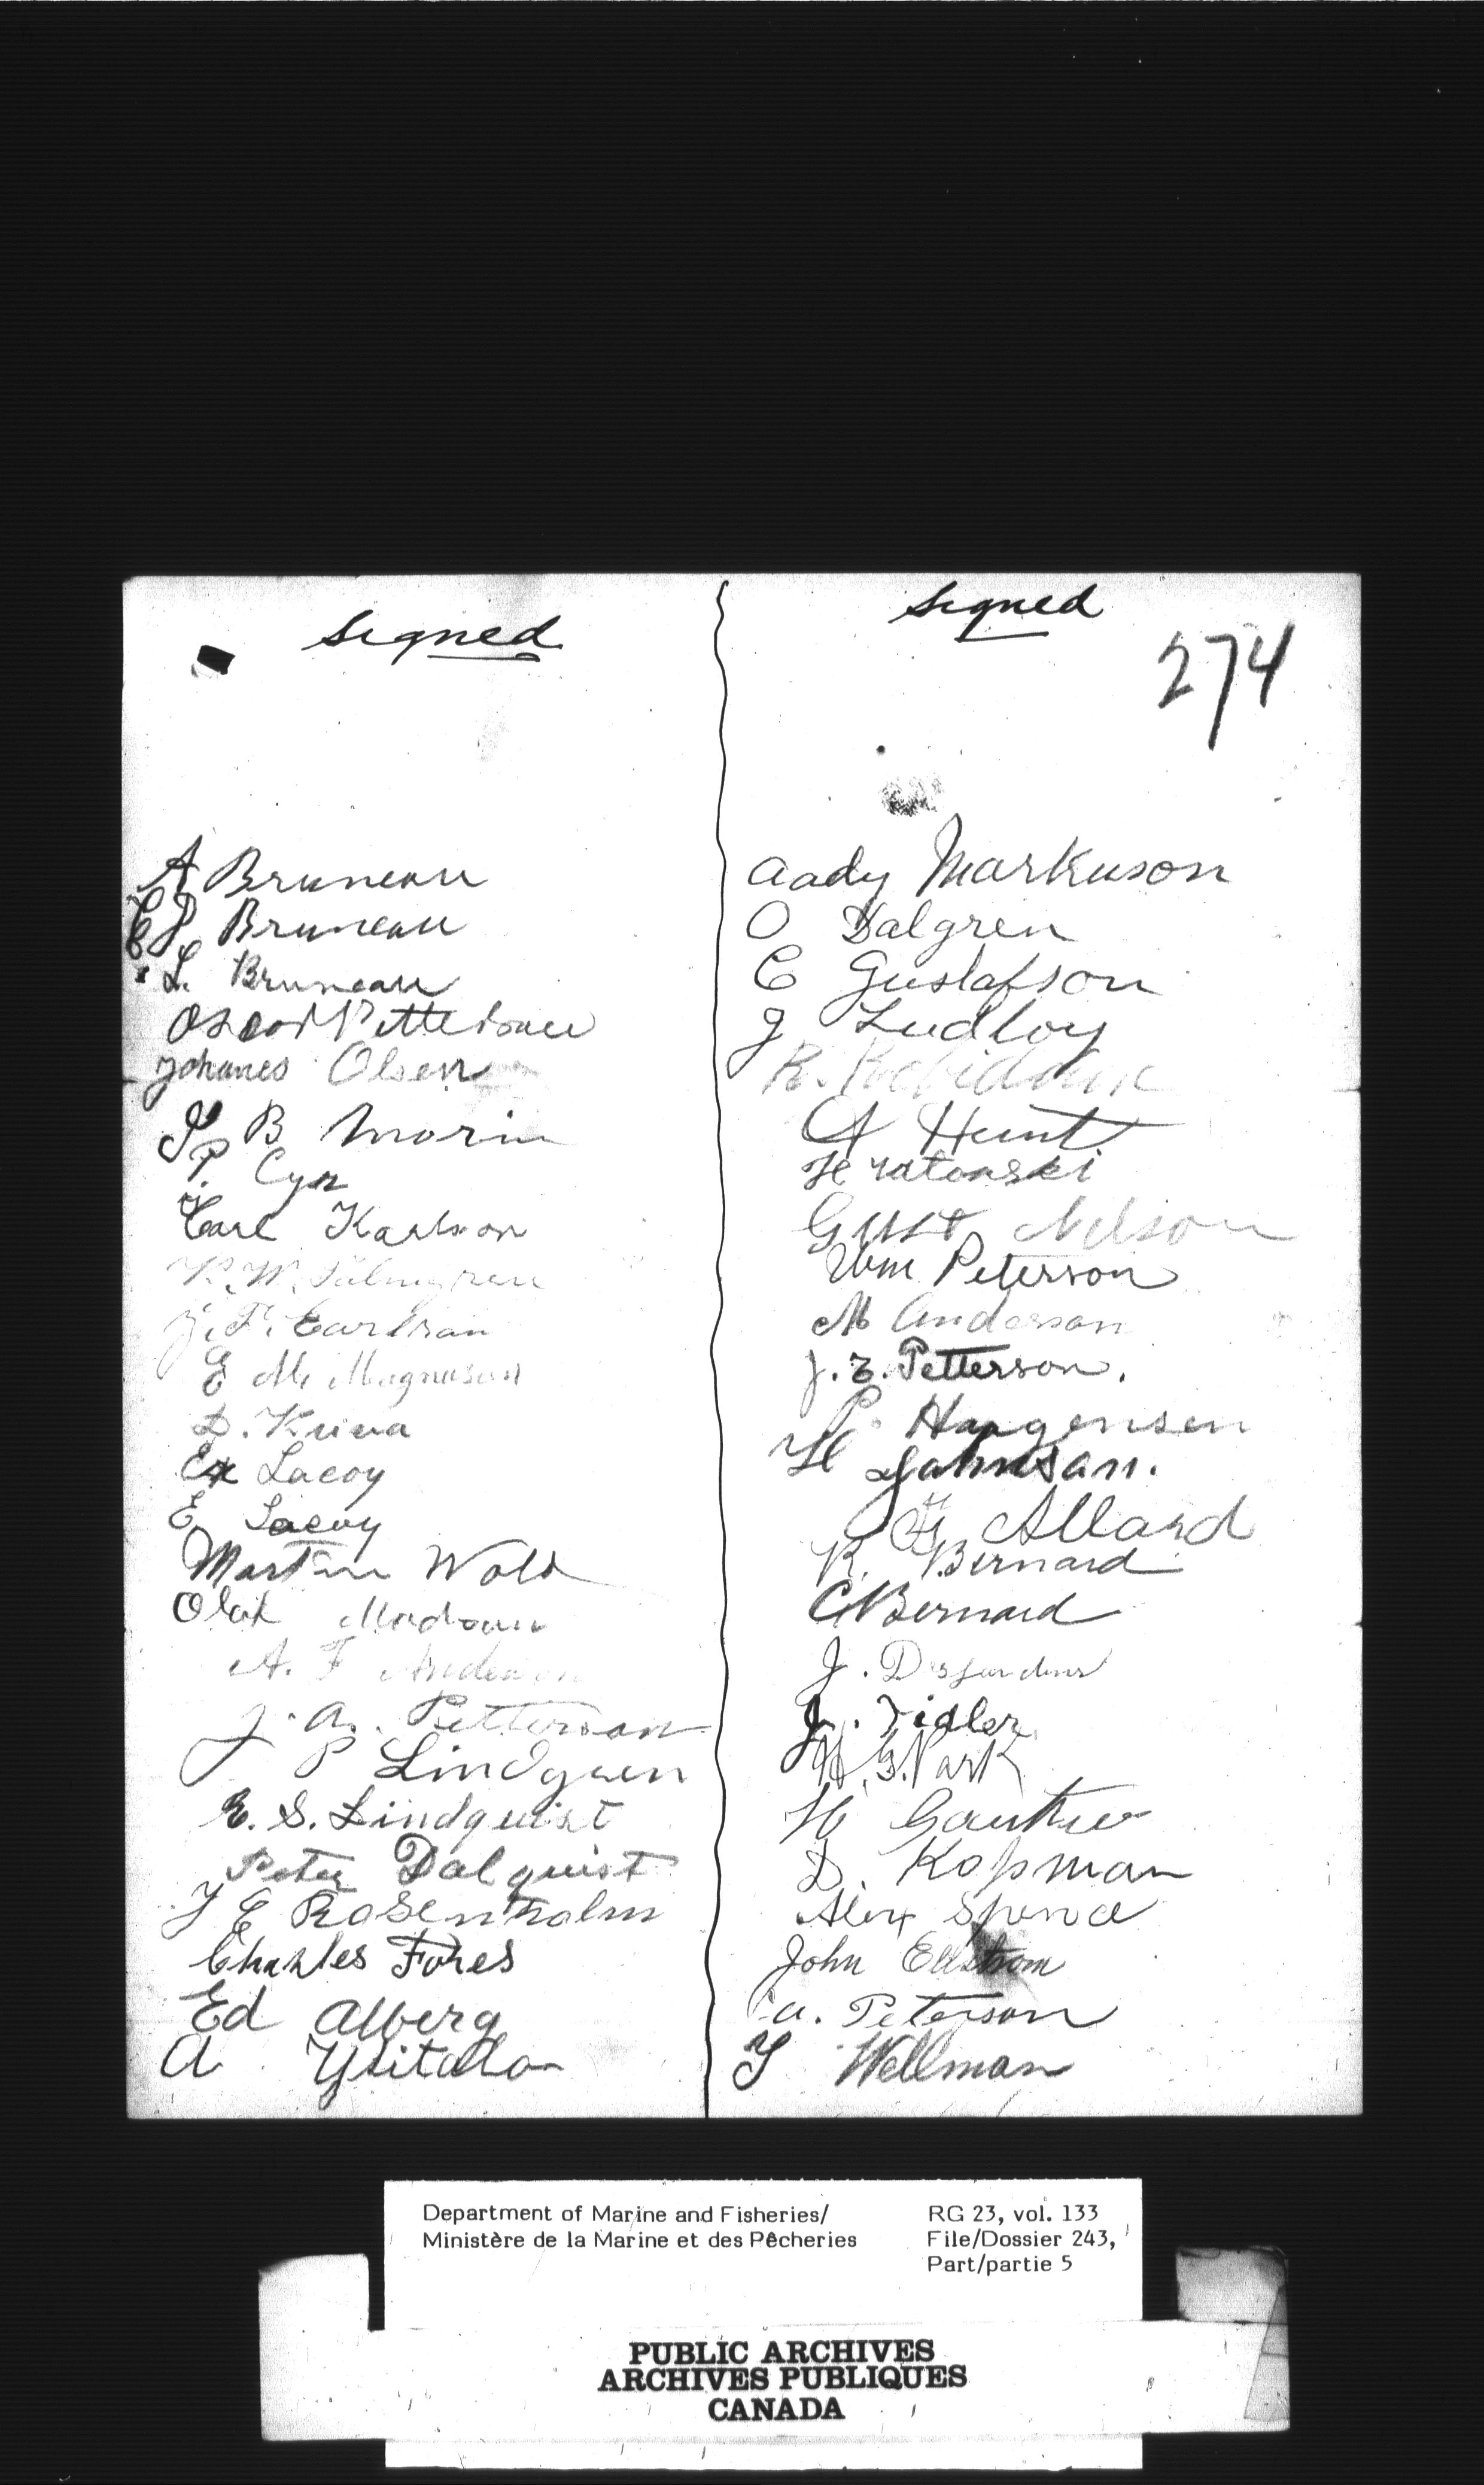 signed
A Bruneau
E P Bruneau
L. Bruneau
Oscar
Johanes Olsen
B Morin
P. Cyr
Carl Karlson
K. W. Palmgren
J. F. Earlson
E M Magnuson
D. Kuva
Ex Lacoy
E Lacoy
Martin Wold
Olaf
A. F Anderson
J. A. Petterson
P Lindgren
E. S. Lindquist
Peter Dalquist
J E Rosenholm
Charles Fores
Ed Alberg
A Ylitalo
signed
274
Aady Markuson
O Dalgren
C Gustafson
J Ludloy
R. Robidoux
A Hunt
H
Gust Nelson
Wm Peterson
M Anderson
J. E. Petterson.
Haugensen
H Johnson.
Allard
R. Bernard
C Bernard
J. Desjardins
J. Fidler
H. G. Park
H Gauthier
D. Kopman
Alex Spence
John Ellstrom
A. Peterson
J Wellman
Department of Marine and Fisheries/
Ministère de la Marine et des Pêcheries
RG 23, vol. 133
File/Dossier 243,
Part/partie 5
PUBLIC ARCHIVES
ARCHIVES PUBLIQUES
CANADA